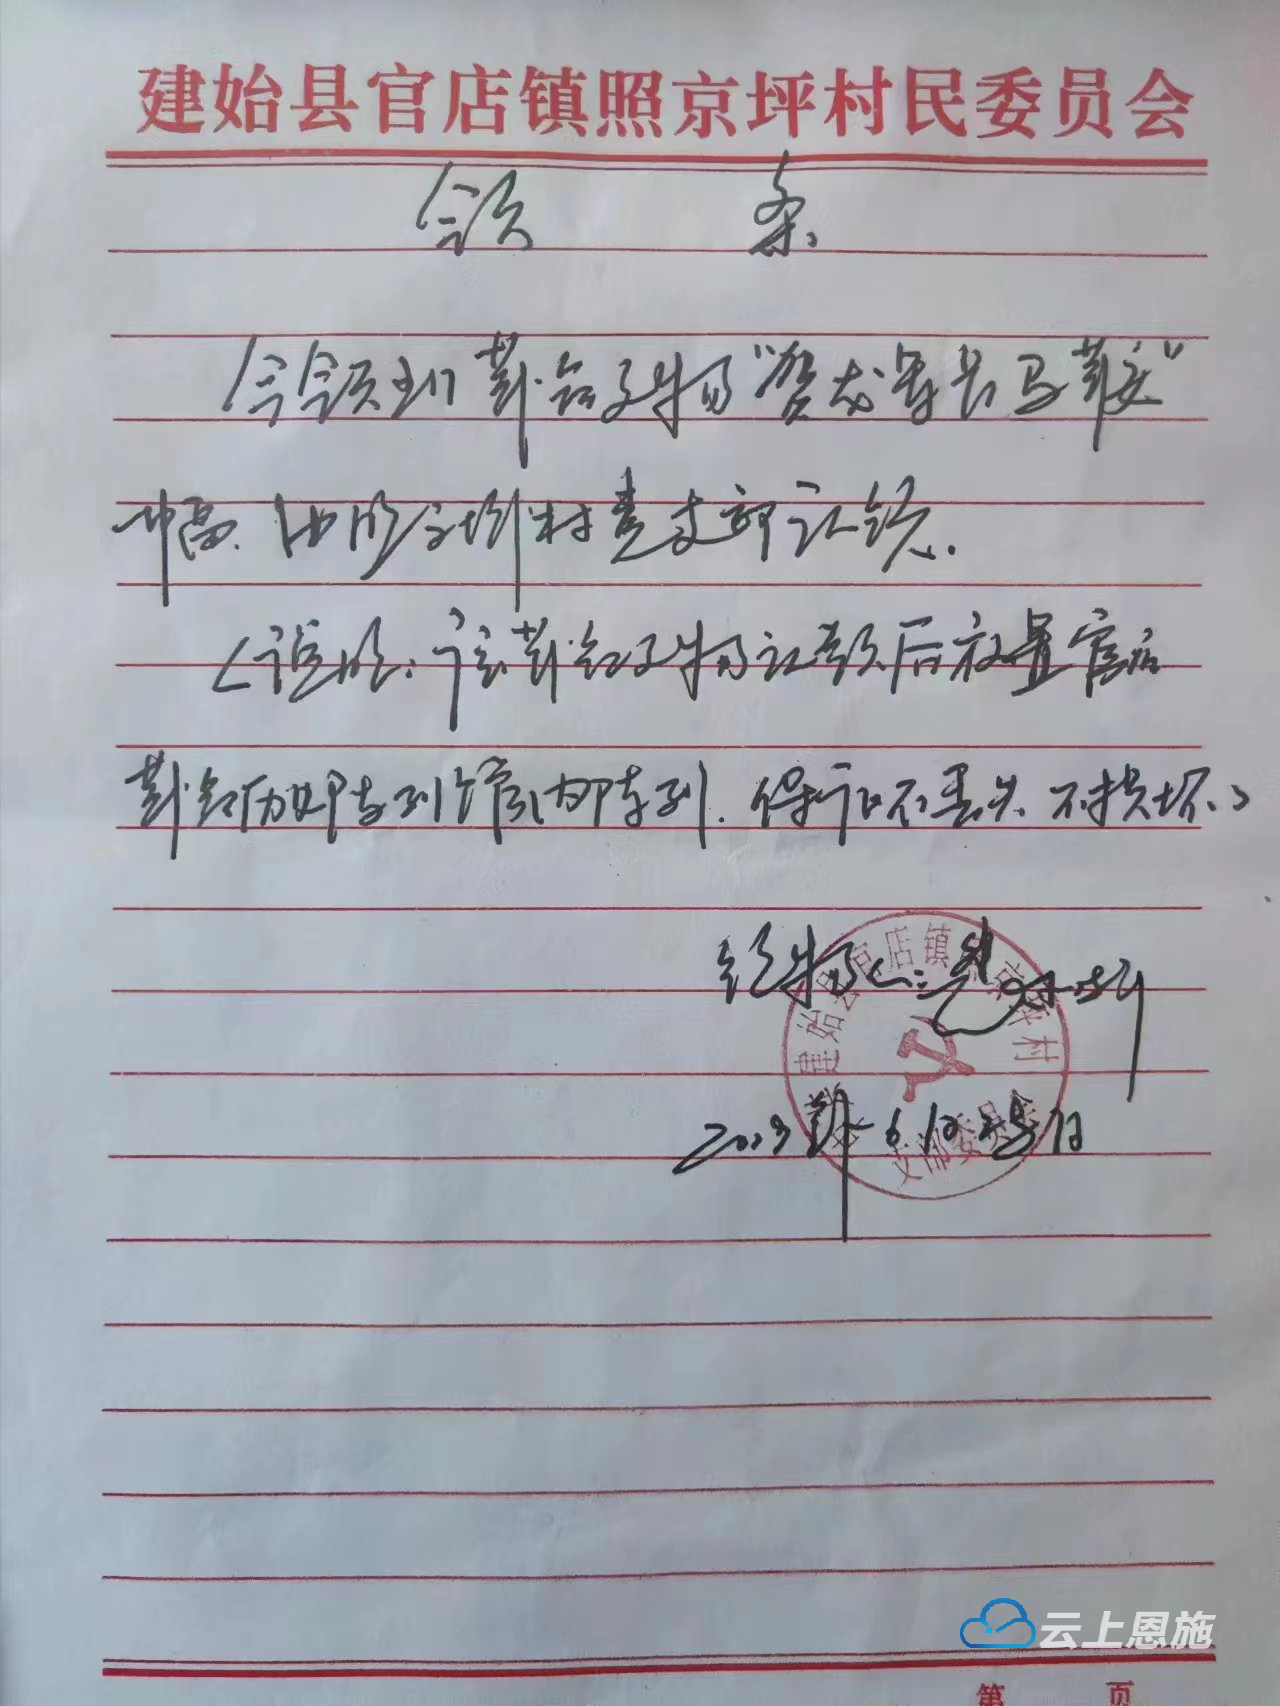 建始县官店镇照京坪村民委员会
领 条
今领到革命文物“贺龙军长马鞍”
一幅。由照京坪村党支部认领。
(说明:该革命文物认领后放置官店
革命历史陈列馆内陈列,保证不丢失不损坏。)
领物人:
2023年6月25日
建始县官店镇照京坪村
支部委员会
云上恩施
第 页